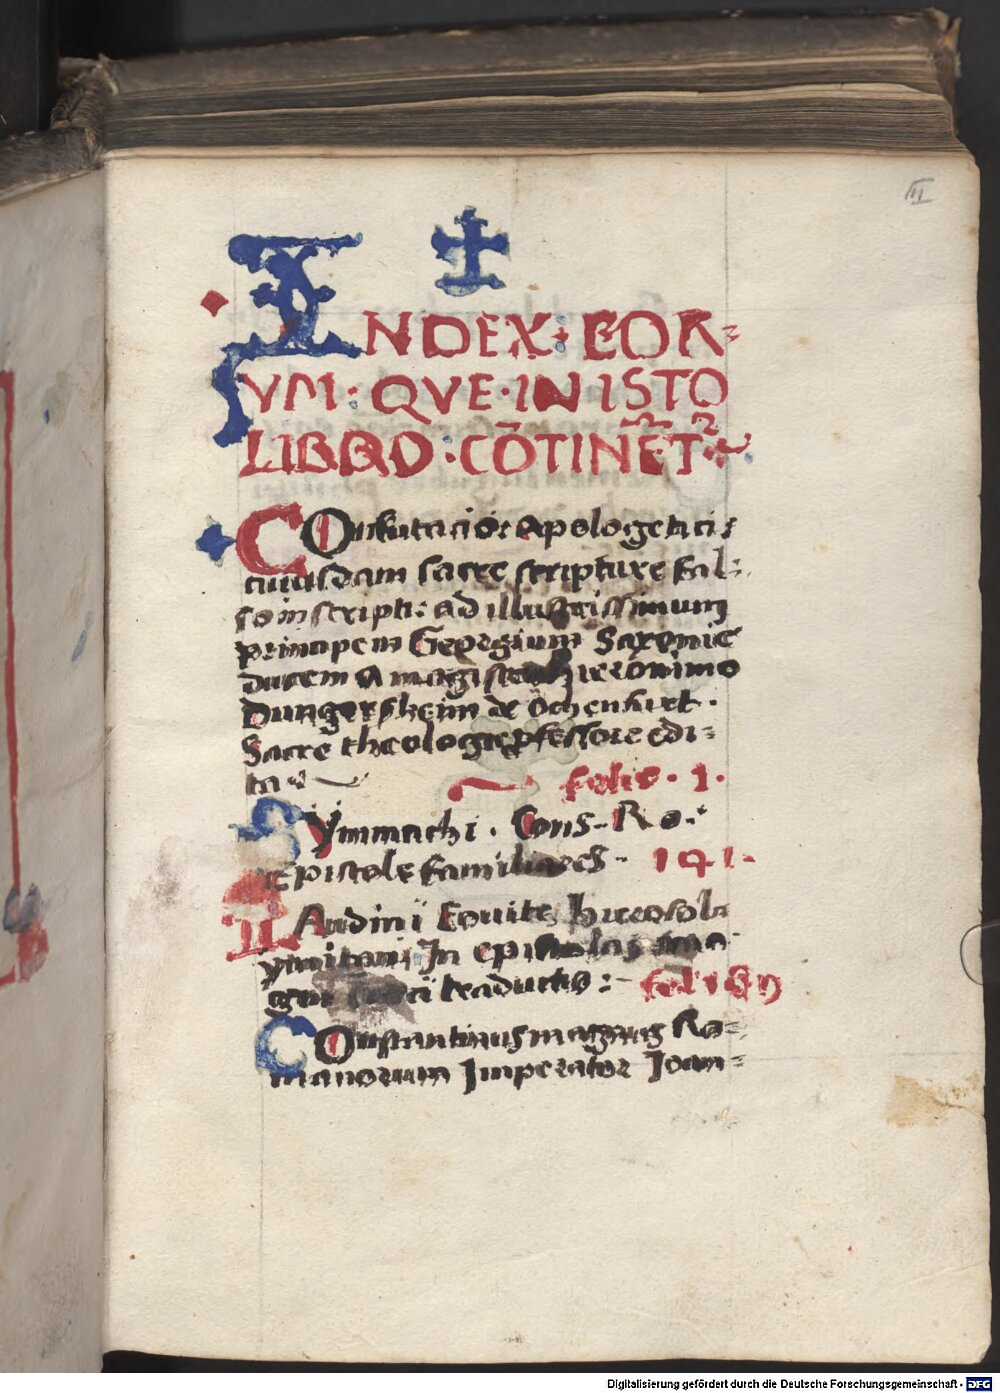 III
INDEX: EOR-
VM: QVE· IN ISTO
LIBRO· CŌTINẼT᷑
COnfutacio: Apologetici:
cuiusdam sacre scripture fal-
so inscripti: ad illustrissimum
principem Georgium Saxonie
ducem A magistro hieronimo
Dungersheim de Ochenfurt·
Sacre theologie ꝓfessore edi-
ta folio· 1·
SYmmachi· Cons- Ro·
Epistole familiares- 141·
LAudini Equitis hierosol-
ymitani In epistolas ma-
gni turci traductio:- fol 189
COnstantinus magnus Ro-
manorum Imperator Joan-
Digitalisierung gefördert durch die Deutsche Forschungsgemeinschaft - DFG